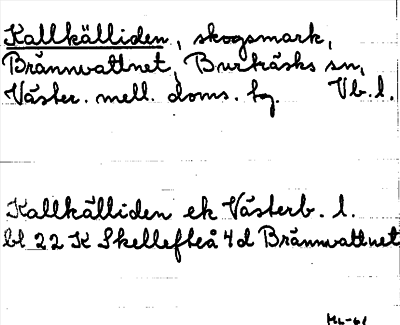 Kallkälliden, skogsmark,
Brännvattnet, Burträsks sn,
Väster. mell. doms. tg. Vb.l.
Kallkälliden ek Västerb. l.
bl 22 K Skellefteå 4d Brännvattnet